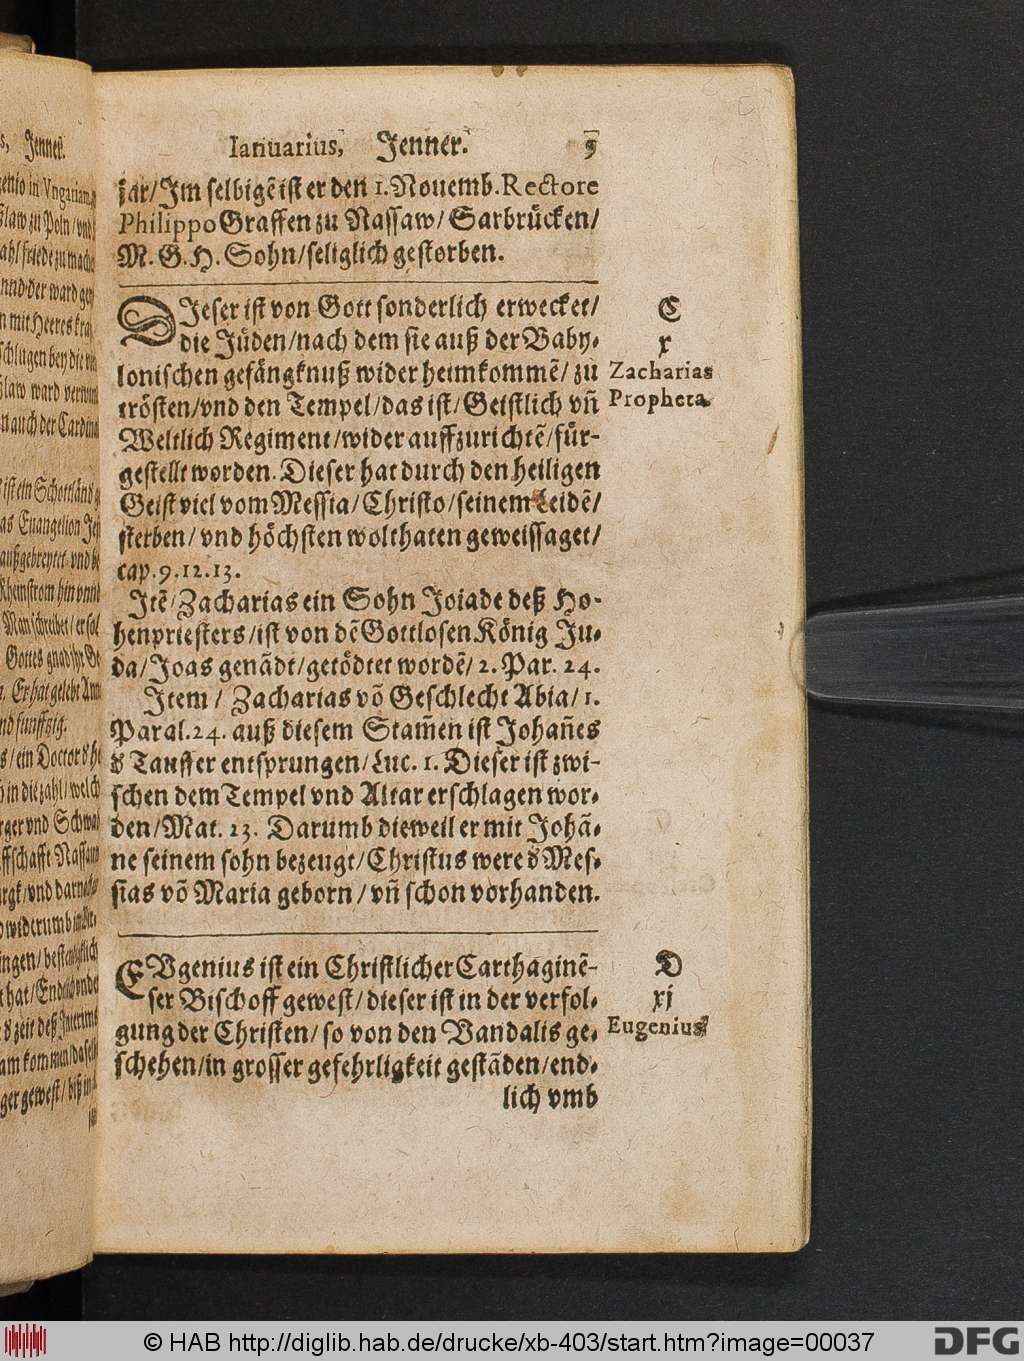 Ianuarius, Jenner. 9
kar/Jm selbigẽ ist er den 1. Nouemb. Rectore
Philippo Graffen zu Nassaw/Sarbrücken/
M. G. H. Sohn/seliglich gestorben.
C
x
Zacharias
Propheta.
DJeser ist von Gott sonderlich erwecket/
die Jüden/nach dem sie auß der Baby-
lonischen gefängknuß wider heimkommẽ/zu
trösten/vnd den Tempel/das ist/Geistlich vñ
Weltlich Regiment/wider auffzurichtẽ/für-
gestellt worden. Dieser hat durch den heiligen
Geist viel vom Messia/Christo/seinem Leidẽ/
sterben/vnd höchsten wolthaten geweissaget/
cap. 9. 12. 13.
Jtẽ/Zacharias ein Sohn Joiade deß Ho-
henpriesters/ist von dẽ Gottlosen König Ju-
da/Joas genãdt/getödtet wordẽ/2. Par. 24.
Jtem/Zacharias võ Geschlecht Abia/1.
Paral. 24. auß diesem Stam̃en ist Johañes
d' Tauffer entsprungen/Luc. 1. Dieser ist zwi-
schen dem Tempel vnd Altar erschlagen wor-
den/Mat. 23. Darumb dieweil er mit Johã-
ne seinem sohn bezeugt/Christus were d' Mes-
sias võ Maria geborn/vñ schon vorhanden.
D
xj
Eugenius
EVgenius ist ein Christlicher Carthaginẽ-
ser Bischoff gewest/dieser ist in der verfol-
gung der Christen/so von den Vandalis ge-
schehen/in grosser gefehrligkeit gestãden/end-
lich vmb
© HAB http://diglib.hab.de/drucke/xb-403/start.htm?image=00037
DFG